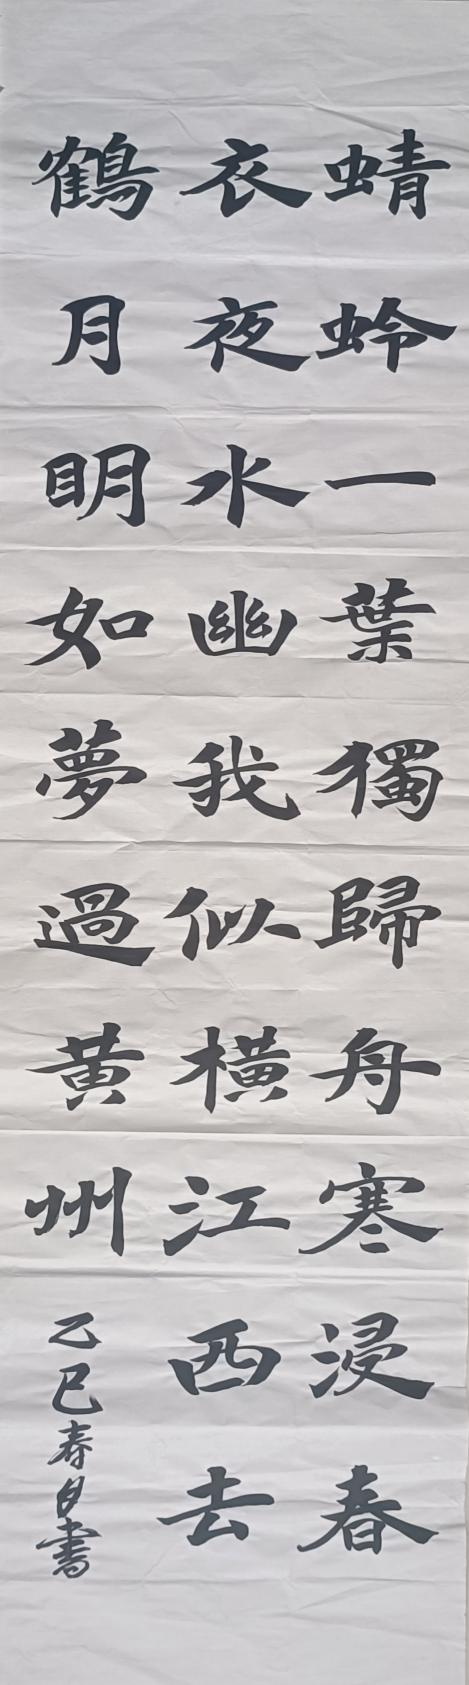 蜻蛉一葉獨歸舟寒浸春
衣夜水幽我似橫江西去
鶴月明如夢過黃州
乙巳春月書